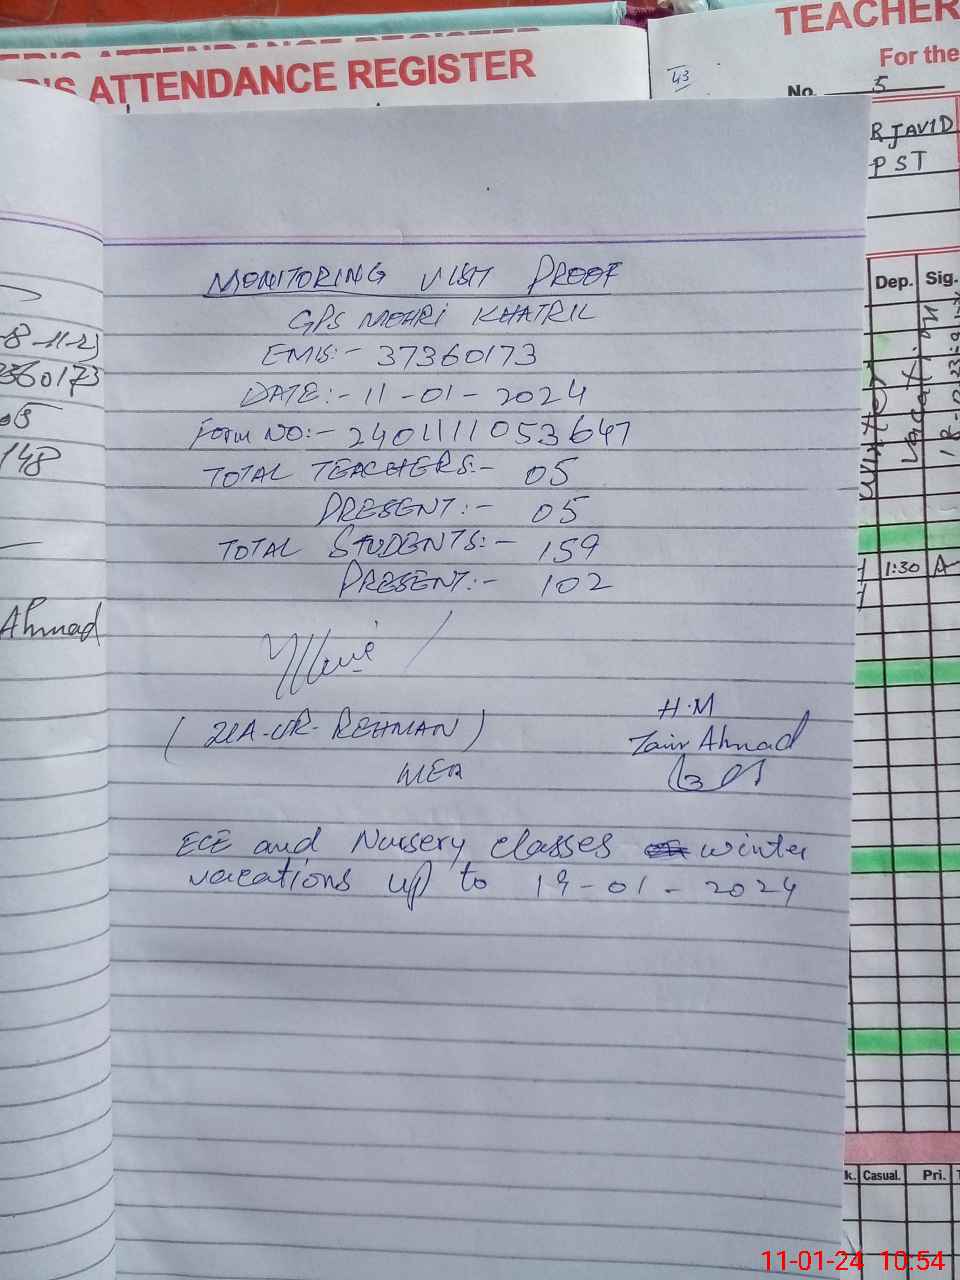 ER'S ATTENDANCE REGISTER
R'S ATTENDANCE REGISTER
TEACHER
For the
43
No. 5
R JAVID
PST
Dep. Sig.
Winter
Vacation
1:30 A
-8-11-23
360173
05
148
Ahmad
MONITORING VISIT PROOF
GPS MEHRI KHATRIL
EMIS:- 37360173
DATE:- 11-01-2024
Form NO:- 2401111053647
TOTAL TEACHERS:- 05
PRESENT:- 05
TOTAL STUDENTS:- 159
PRESENT:- 102
(ZIA-UR-REHMAN)
MEA
H.M
Zair Ahmad
ECE and Nursery classes winter
vacations up to 19-01-2024
k. Casual. Pri.
11-01-24 10:54